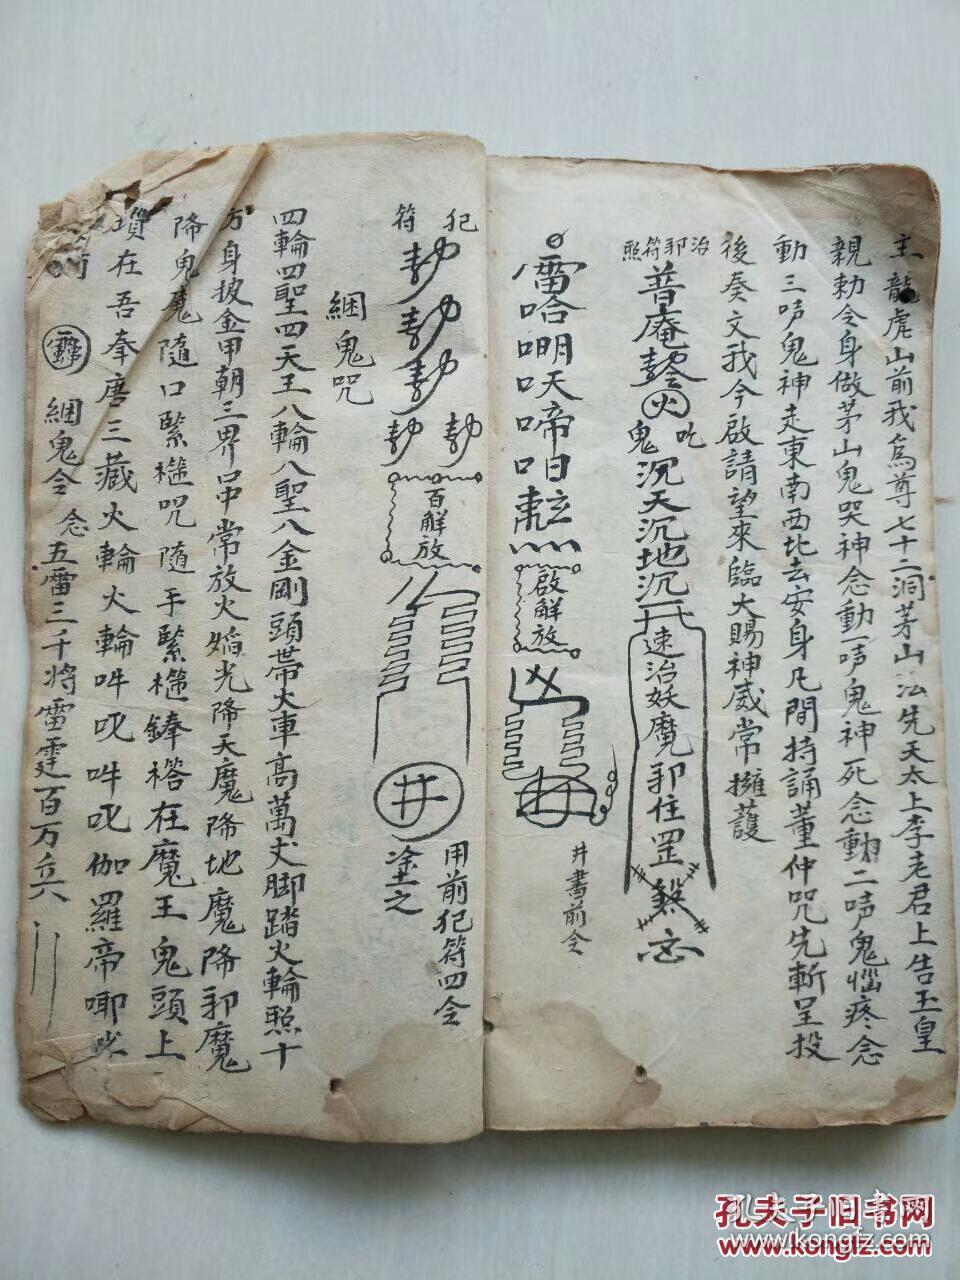 主龍虎山前我爲尊七十二洞茅山法先天太上李老君上告玉皇
親勅令身做茅山鬼哭神念動一声鬼神死念動二声鬼惱疼念
動三声鬼神走東南西北去安身凡間持誦董仲咒先斬呈投
後奏文我今啟請望來臨大賜神威常擁護
治邪符照
普庵
火
吃鬼
沉天沉地沉
速治妖魔邪住罡煞
雷哈啁呋啼唱
啟解放
凶
井
井書前令
犯符
勅勅勅
勅勅
百解放
井
塗之
用前犯符四令
綑鬼咒
四輪四聖四天王八輪八聖八金剛頭帶火車高萬丈脚踏火輪照十
方身披金甲朝三界口中常放火焰光降天魔降地魔降邪魔
降鬼魔隨口緊𢰇咒隨手緊𢰇鋒搭在魔王鬼頭上
在吾奉唐三藏火輪火輪吽吪吽吪伽羅帝唧
綑鬼令 念五雷三千將雷霆百万兵
孔夫子旧书网
www.kongfz.com